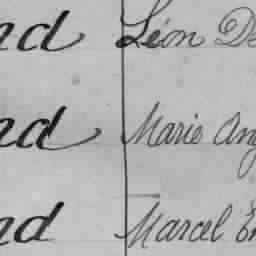 nd Léon De
nd Marie Ang
nd Marcel Em